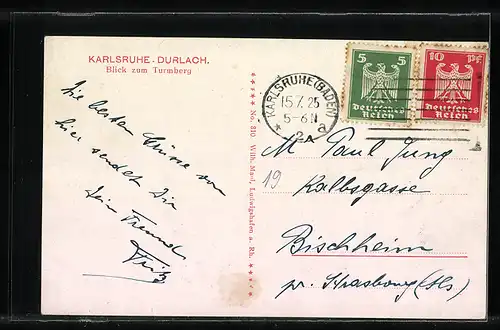 KARLSRUHE-DURLACH.
Blick zum Turmberg
Die besten Grüsse von
hier sendet Dir
Dein Freund
Fritz
* * * * * No. 810 Wilh. Ludwigshafen a. Rh. * * * * *
KARLSRUHE (BADEN)
15.X.25
5-6 N
* 2 a
5 5
Deutsches
Reich
10 Pf
Deutsches
Reich
M Paul Jung
19
Kalbsgasse
Bischheim
pr. Strasbourg (Els)